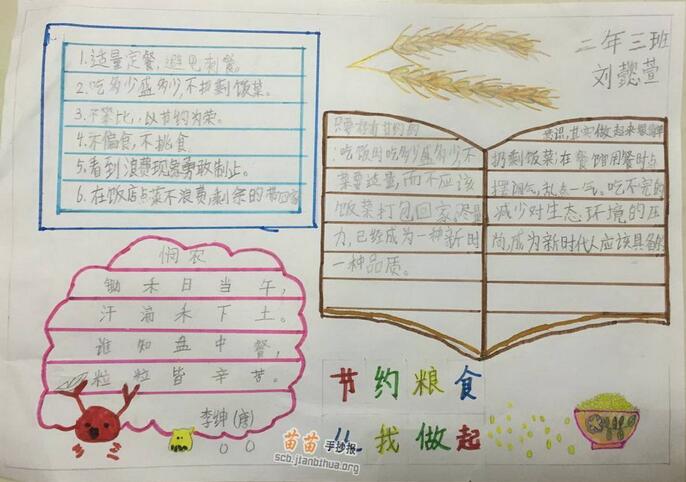 二年三班
刘懿萱
1.适量定餐,避免剩餐。
2.吃多少盛多少,不扔剩饭菜。
3.不攀比,以节约为荣。
4.不偏食,不挑食
5.看到浪费现象勇敢制止。
6.在饭店点菜不浪费,剩余的带回家
只要存有节约的
:吃饭时吃多少盛多少,不
菜要适量,而不应该
饭菜打包回家,尽量
力,已经成为一种新时
一种品质。
意识,其实做起来很简单
扔剩饭菜;在餐馆用餐时点
摆阔气,乱点一气,吃不完的
减少对生态环境的压
尚,成为新时代人应该具备的
悯农
锄禾日当午,
汗滴禾下土。
谁知盘中餐,
粒粒皆辛苦。
李绅(唐)
节约粮食
从我做起
苗苗手抄报
scb.jianbihua.org